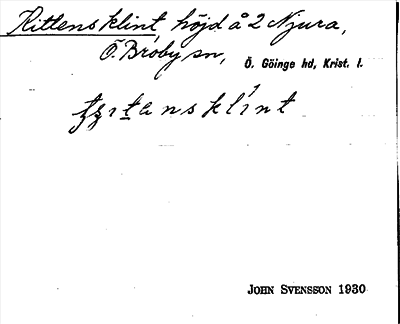 Kittens klint, höjd å 2 Njura,
Ö. Broby sn, Ö. Göinge hd, Krist. l.
JOHN SVENSSON 1930